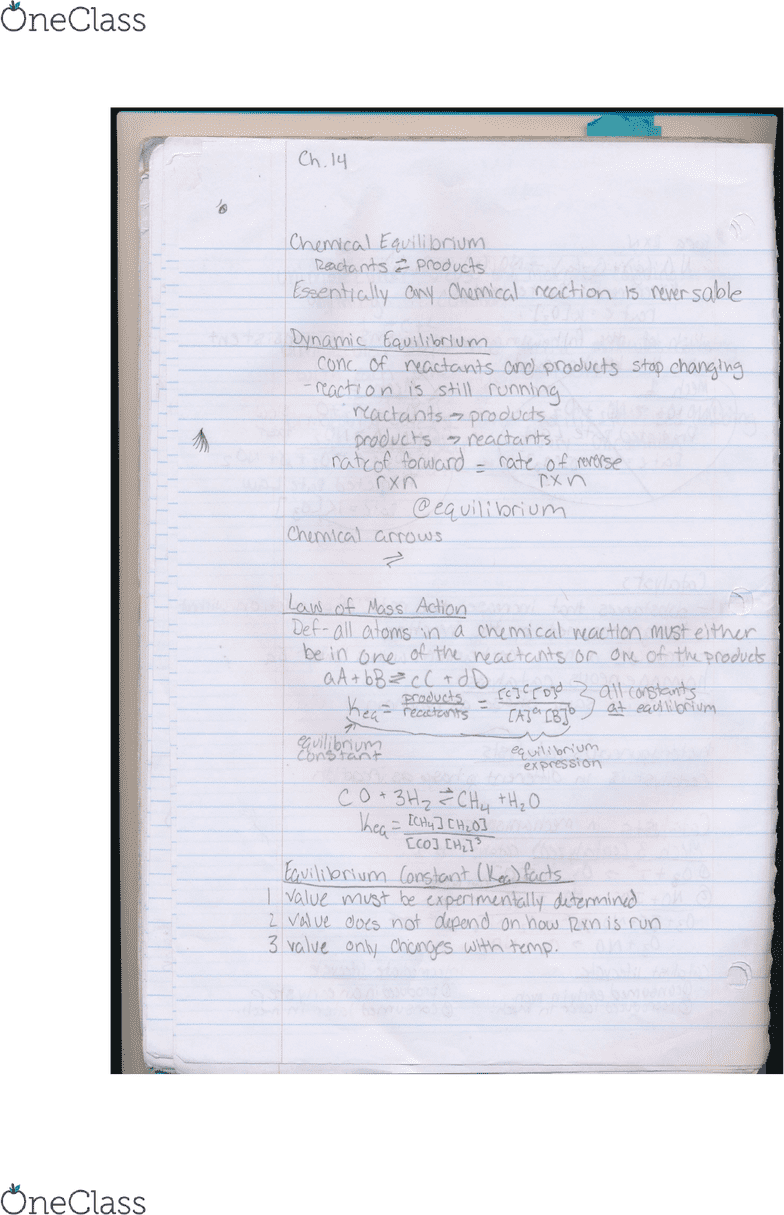 OneClass
Ch. 14
Chemical Equilibrium
Reactants ⇌ products
Essentially any chemical reaction is reversable
Dynamic Equilibrium
conc. of reactants and products stop changing
-reaction is still running
reactants → products
products → reactants
rate of forward = rate of reverse
rxn rxn
@equilibrium
Chemical arrows
⇌
Law of Mass Action
Def-all atoms in a chemical reaction must either
be in one of the reactants or one of the products
aA+bB⇌cC+dD
Keq = products/reactants = [C]^c[D]^d/[A]^a[B]^b } all constants
at equilibrium
equilibrium constant
equilibrium expression
CO + 3H₂ ⇌ CH₄ + H₂O
Keq = [CH₄][H₂O]/[CO][H₂]³
Equilibrium Constant (Keq) facts
1 value must be experimentally determined
2 value does not depend on how Rxn is run
3 value only changes with temp.
OneClass